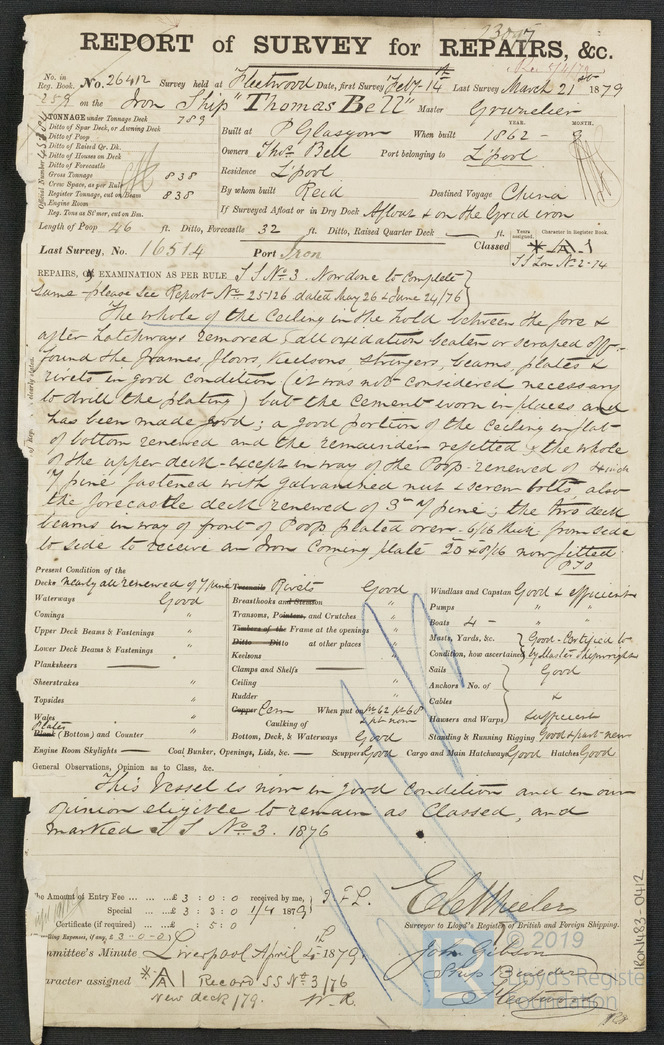 REPORT of SURVEY for REPAIRS, &c.
No. in Reg. Book. No. 26412 Survey held at Fleetwood Date, first Survey Feby 14th Last Survey March 21st 1879
259 on the Iron Ship "Thomas Bell" Master
TONNAGE under Tonnage Deck 789
Ditto of Spar Deck, or Awning Deck
Ditto of Poop
Ditto of Raised Qr. Dk.
Ditto of Houses on Deck
Ditto of Forecastle
Gross Tonnage 838
Crew Space, as per Rule
Register Tonnage, cut on Beam 838
Engine Room
Reg. Tons as St'mer, cut on Bm.
Official Number
Built at P Glasgow When built YEAR. 1862 - MONTH. 9
Owners Thos. Bell Port belonging to L'pool
Residence L'pool
By whom built Reid Destined Voyage China
If Surveyed Afloat or in Dry Dock Afloat & on the Grid iron
Length of Poop 46 ft. Ditto, Forecastle 32 ft. Ditto, Raised Quarter Deck — ft.
Last Survey, No. 16514 Port Iron Classed Years assigned. Character in Register Book. A 1
SS Lon No 2-74
REPAIRS, or EXAMINATION AS PER RULE S S No 3. Now done to Complete
same please see Report No. 25126 dated May 26 & June 24/76
The whole of the Ceiling in the hold between the fore &
after hatchways removed, all oxidation beaten or scraped off
found the frames, floors, keelsons stringers, beams, plates &
rivets in good condition (it was not considered necessary
to drill the plating) but the cement worn in places and
has been made good; a good portion of the ceiling in flat
of bottom renewed and the remainder refitted & the whole
of the upper deck - except in way of the Poop - renewed of 4 inch
Y pine fastened with galvanized nut & screw bolts, also
the forecastle deck renewed of 3in Y pine; the two deck
beams in way of front of Poop plated over 6/16 thick from side
to side to receive an Iron Coming plate 20 x 8/16 now fitted
PTO
Present Condition of the
Decks nearly all renewed of Y pine
Waterways Good
Comings "
Upper Deck Beams & Fastenings "
Lower Deck Beams & Fastenings "
Planksheers —
Sheerstrakes "
Topsides "
Wales "
Plates
Plank (Bottom) and Counter "
Engine Room Skylights — Coal Bunker, Openings, Lids, &c. — Scuppers Good Cargo and Main Hatchways Good Hatches Good
Treenails Rivets Good
Breasthooks and Stemson "
Transoms, Pointers, and Crutches "
Timbers of the Frame at the openings "
Ditto Ditto at other places "
Keelsons "
Clamps and Shelfs —
Ceiling "
Rudder "
Copper Cem When put on pt 62 pt 68
Caulking of & pt now
Bottom, Deck, & Waterways Good
Windlass and Capstan Good & efficient
Pumps " "
Boats 4 - "
Masts, Yards, &c. Good - Certified to
Condition, how ascertained by Master & shipwrights
Sails Good
Anchors No. of &
Cables
Hausers and Warps sufficient
Standing & Running Rigging Good & part new
General Observations, Opinion as to Class, &c.
This Vessel is now in good Condition and in our
opinion eligible to remain as Classed, and
marked S S No. 3. 1876
he Amount of Entry Fee ... ... £3 : 0 : 0 received by me,
Special ... £3 : 3 : 0 1/4 1879
Certificate (if required) ... £ : 5 : 0
Surveyor to Lloyd's Register of British and Foreign Shipping.
mmittee's Minute Liverpool April 4th 1879
John Gibson
Ship Builder
Fleetwood
aracter assigned A 1 Record SS No 3/76
New deck /79.
© 2019
Lloyd's Register
Foundation